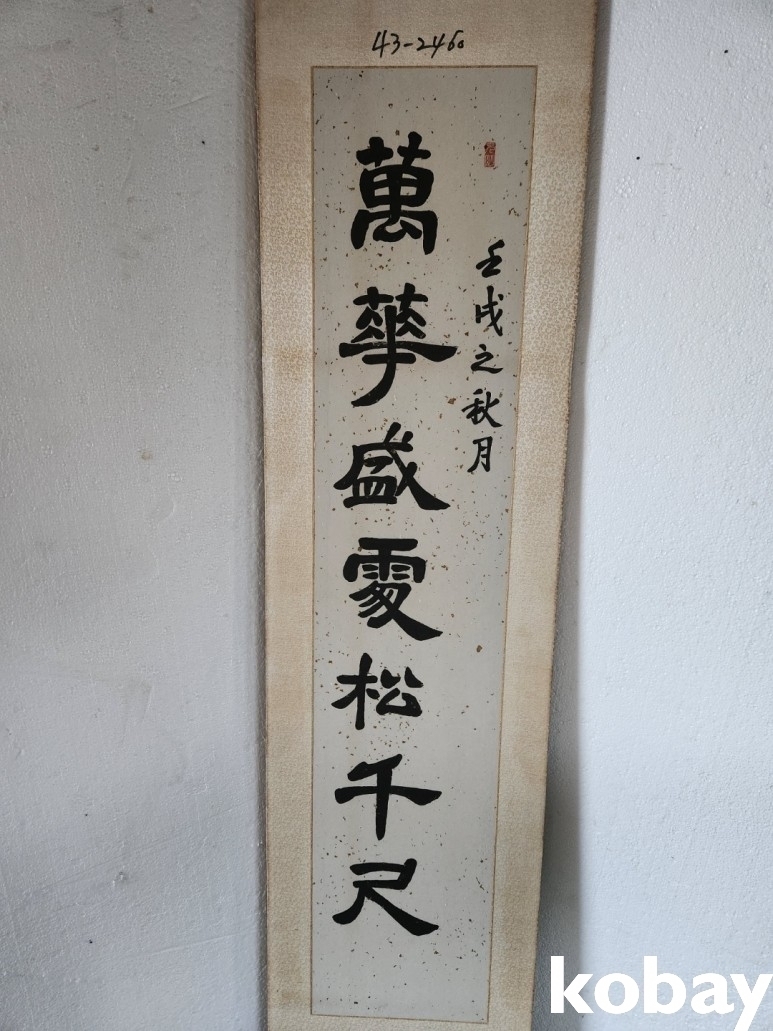 43-2460
壬戌之秋月
萬華盛處松千尺
kobay